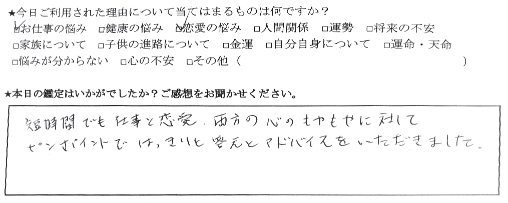 ★今日ご利用された理由について当てはまるものは何ですか？
☑お仕事の悩み □健康の悩み ☑恋愛の悩み □人間関係 □運勢 □将来の不安
□家族について □子供の進路について □金運 □自分自身について □運命・天命
□悩みが分からない □心の不安 □その他（ ）
★本日の鑑定はいかがでしたか？ご感想をお聞かせください。
短時間でも仕事と恋愛、両方の心のもやもやに対して
ピンポイントではっきりと答えとアドバイスをいただきました。